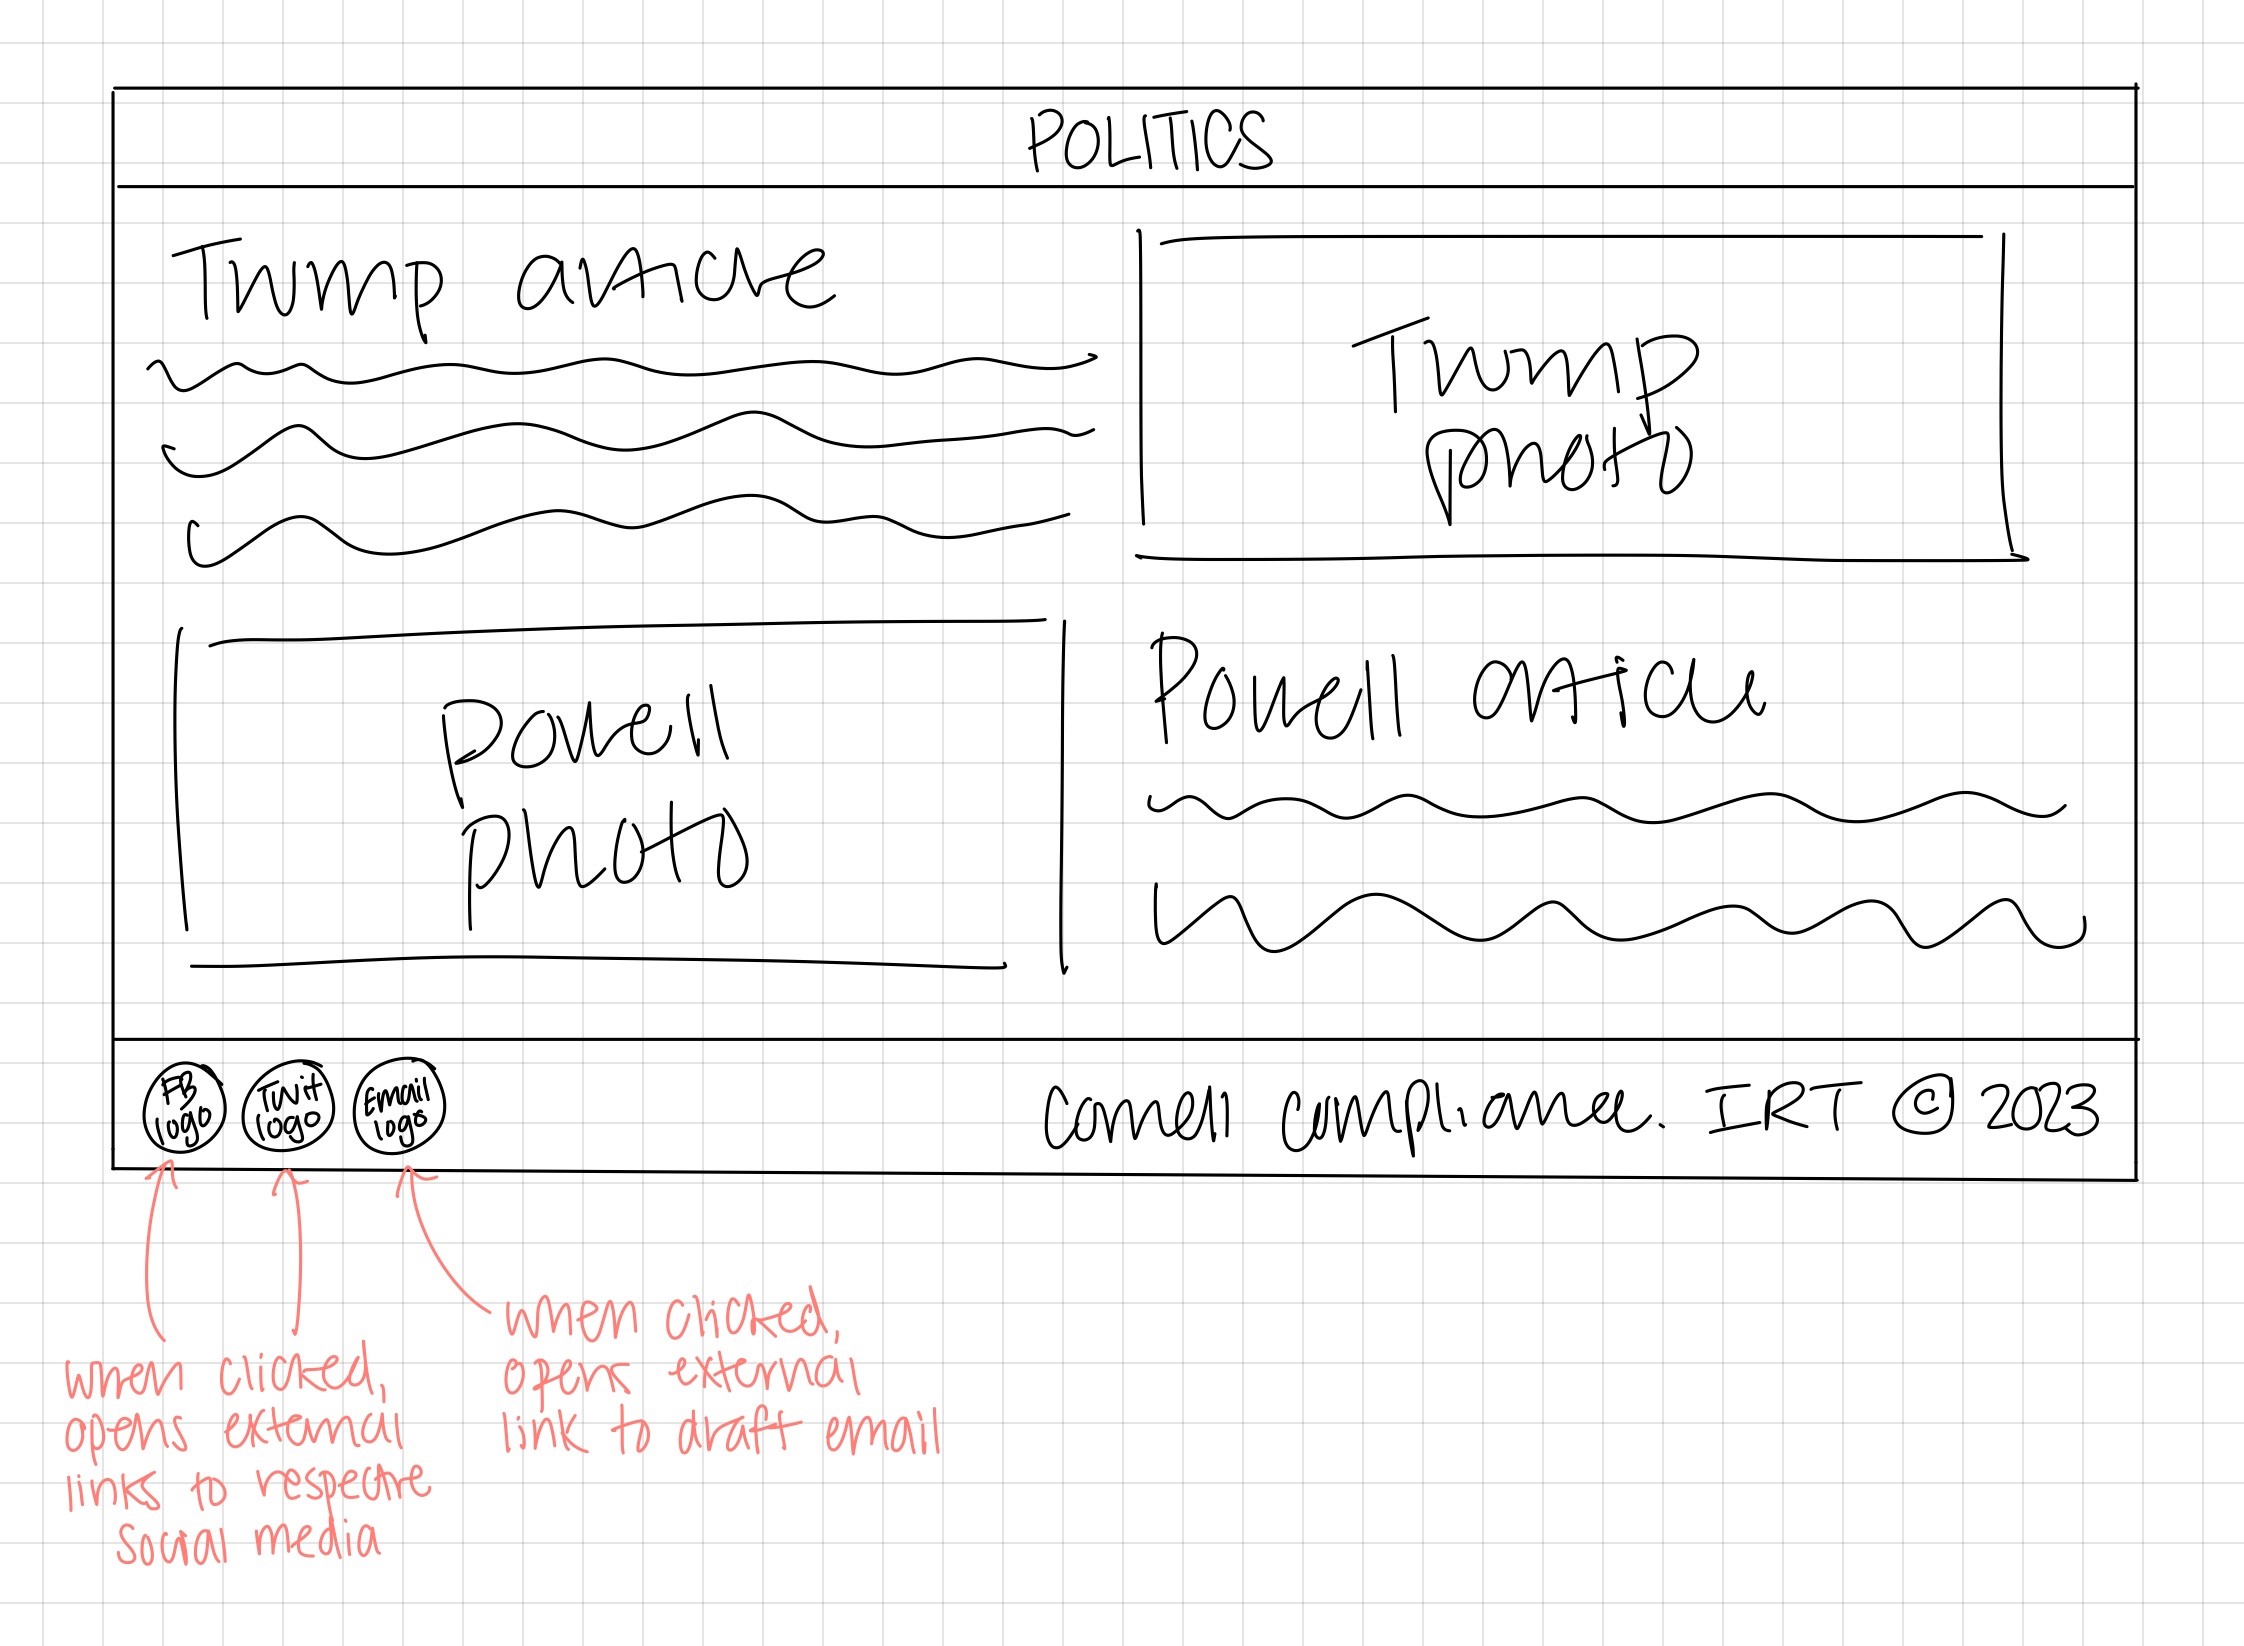 POLITICS
Trump article
Trump
photo
Powell
photo
Powell article
FB
logo
Twit
logo
Email
logo
Camell compliance. IRT © 2023
when clicked,
opens external
links to respective
social media
when clicked,
opens external
link to draft email